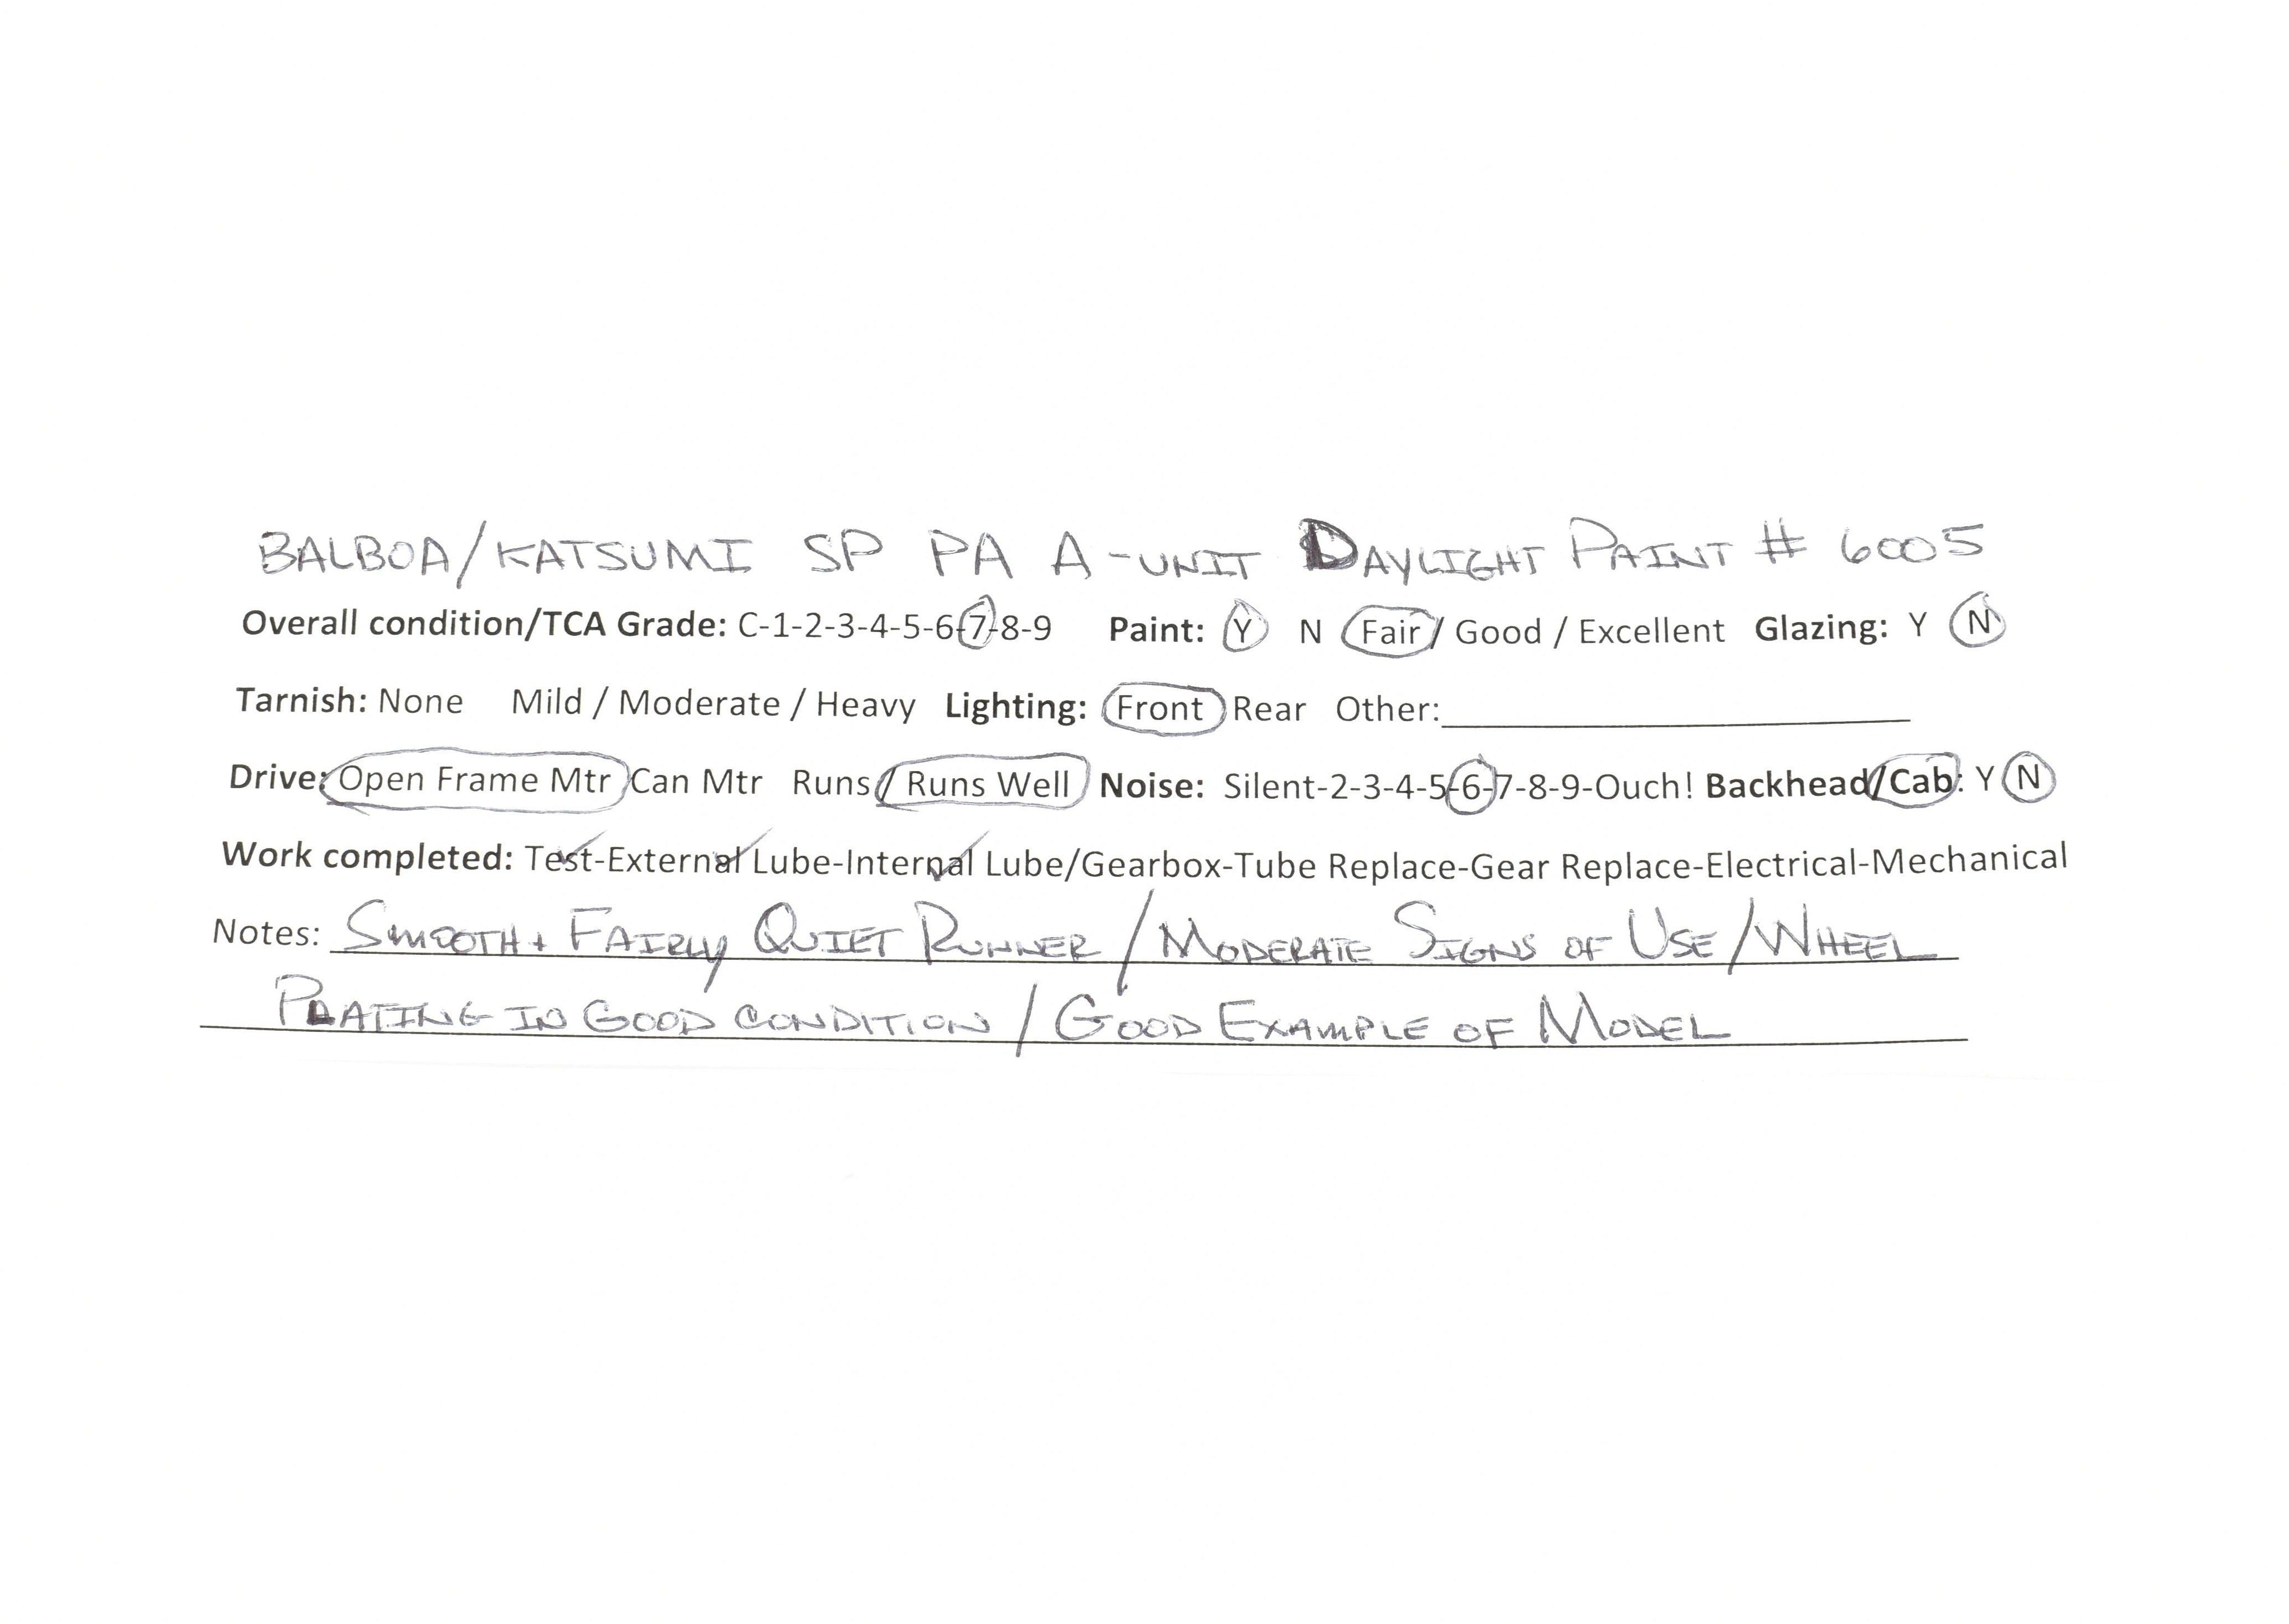 BALBOA/KATSUMI SP PA A-UNIT DAYLIGHT PAINT # 6005
Overall condition/TCA Grade: C-1-2-3-4-5-6-7-8-9 Paint: Y N Fair / Good / Excellent Glazing: Y N
Tarnish: None Mild / Moderate / Heavy Lighting: Front Rear Other:
Drive: Open Frame Mtr Can Mtr Runs / Runs Well Noise: Silent-2-3-4-5-6-7-8-9-Ouch! Backhead/Cab: Y N
Work completed: Test-External Lube-Internal Lube/Gearbox-Tube Replace-Gear Replace-Electrical-Mechanical
Notes: SMOOTH + FAIRLY QUIET RUNNER / MODERATE SIGNS OF USE / WHEEL
PLATING IN GOOD CONDITION / GOOD EXAMPLE OF MODEL